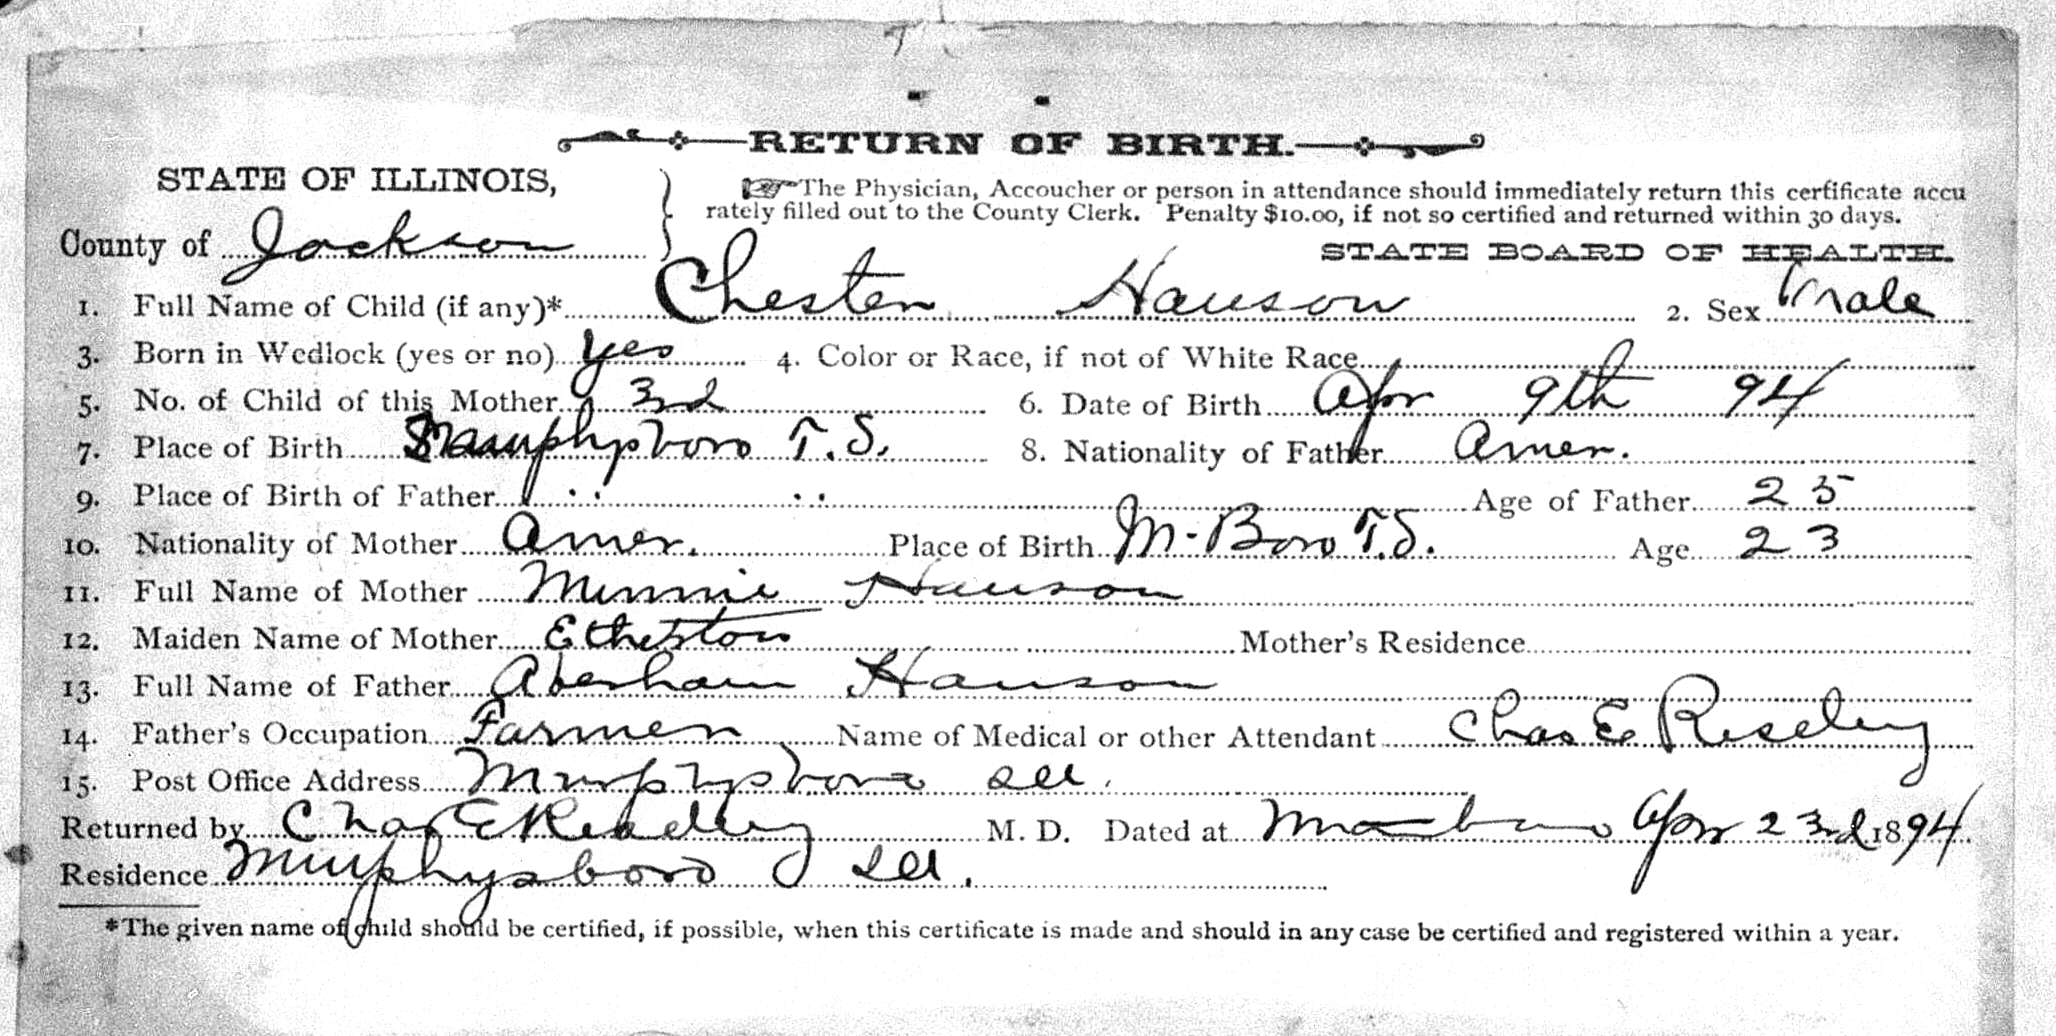 RETURN OF BIRTH.
STATE OF ILLINOIS,
The Physician, Accoucher or person in attendance should immediately return this cerfificate accu
rately filled out to the County Clerk. Penalty $10.00, if not so certified and returned within 30 days.
County of Jackson
STATE BOARD OF HEALTH.
1. Full Name of Child (if any)* Chester Hanson 2. Sex Male
3. Born in Wedlock (yes or no) yes 4. Color or Race, if not of White Race
5. No. of Child of this Mother 3rd 6. Date of Birth Apr 9th 94
7. Place of Birth Murphysboro T.S. 8. Nationality of Father Amer.
9. Place of Birth of Father " " Age of Father 25
10. Nationality of Mother Amer. Place of Birth M-Boro T.S. Age 23
11. Full Name of Mother Minnie Hanson
12. Maiden Name of Mother Etherton Mother's Residence
13. Full Name of Father Aberham Hanson
14. Father's Occupation Farmer Name of Medical or other Attendant Chas E
15. Post Office Address Murphysboro Ill.
Returned by Chas E M. D. Dated at Apr 23rd 1894
Residence Murphysboro Ill.
*The given name of child should be certified, if possible, when this certificate is made and should in any case be certified and registered within a year.